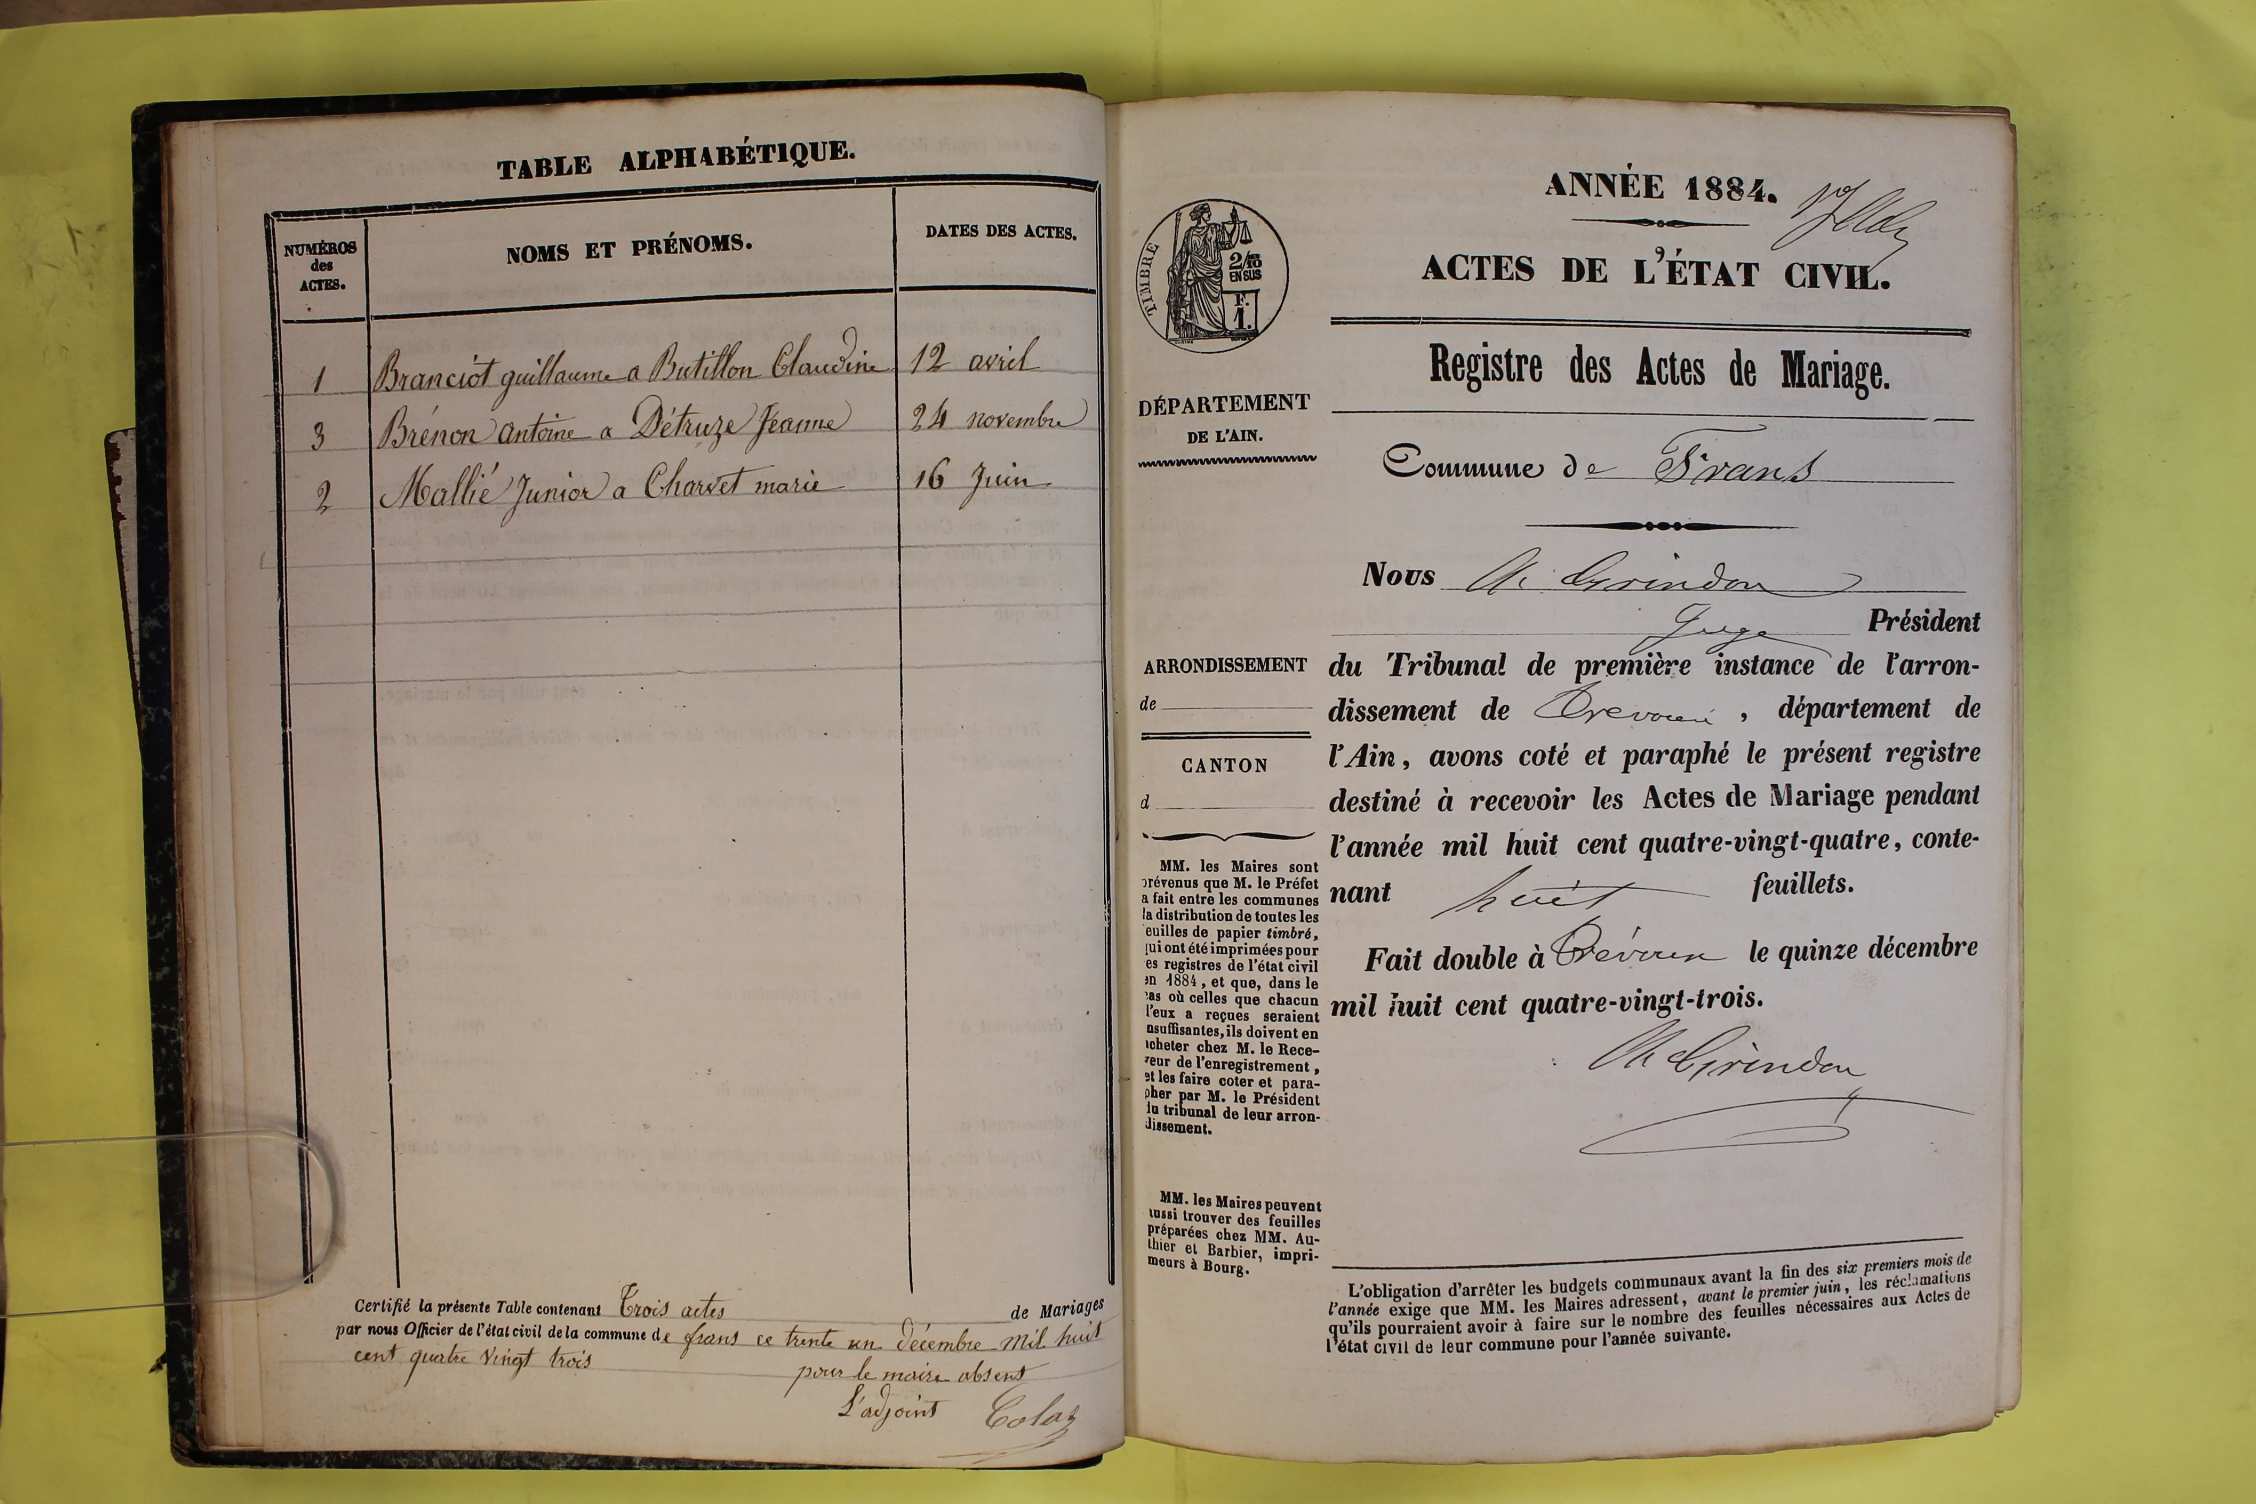 TABLE ALPHABÉTIQUE.
NUMÉROS
des
ACTES.
NOMS ET PRÉNOMS.
DATES DES ACTES.
1 Branciot guillaume a Butillon Claudine 12 avril
3 Brénon antoine a Détruze Jeanne 24 novembre
2 Mallié Junior a Charvet marie 16 Juin
Certifié la présente Table contenant Trois actes de Mariages
par nous Officier de l'état civil de la commune de frans ce trente un décembre Mil huit
cent quatre vingt trois
pour le maire absent
L'adjoint Colas
ANNÉE 1884.
ACTES DE L'ÉTAT CIVIL.
TIMBRE
2/10
EN SUS
F.
1.
Registre des Actes de Mariage.
DÉPARTEMENT
DE L'AIN.
Commune de Frans
Nous Grindon
Juge Président
ARRONDISSEMENT
de
CANTON
d
du Tribunal de première instance de l'arron-
dissement de Trévoux, département de
l'Ain, avons coté et paraphé le présent registre
destiné à recevoir les Actes de Mariage pendant
l'année mil huit cent quatre-vingt-quatre, conte-
nant huit feuillets.
Fait double à Trévoux le quinze décembre
mil huit cent quatre-vingt-trois.
Grindon
MM. les Maires sont
prévenus que M. le Préfet
a fait entre les communes
la distribution de toutes les
euilles de papier timbré,
qui ont été imprimées pour
es registres de l'état civil
en 1884, et que, dans le
cas où celles que chacun
d'eux a reçues seraient
nsuffisantes, ils doivent en
acheter chez M. le Rece-
veur de l'enregistrement,
et les faire coter et para-
pher par M. le Président
du tribunal de leur arron-
dissement.
MM. les Maires peuvent
aussi trouver des feuilles
préparées chez MM. Au-
thier et Barbier, impri-
meurs à Bourg.
L'obligation d'arrêter les budgets communaux avant la fin des six premiers mois de
l'année exige que MM. les Maires adressent, avant le premier juin, les réclamations
qu'ils pourraient avoir à faire sur le nombre des feuilles nécessaires aux Actes de
l'état civil de leur commune pour l'année suivante.